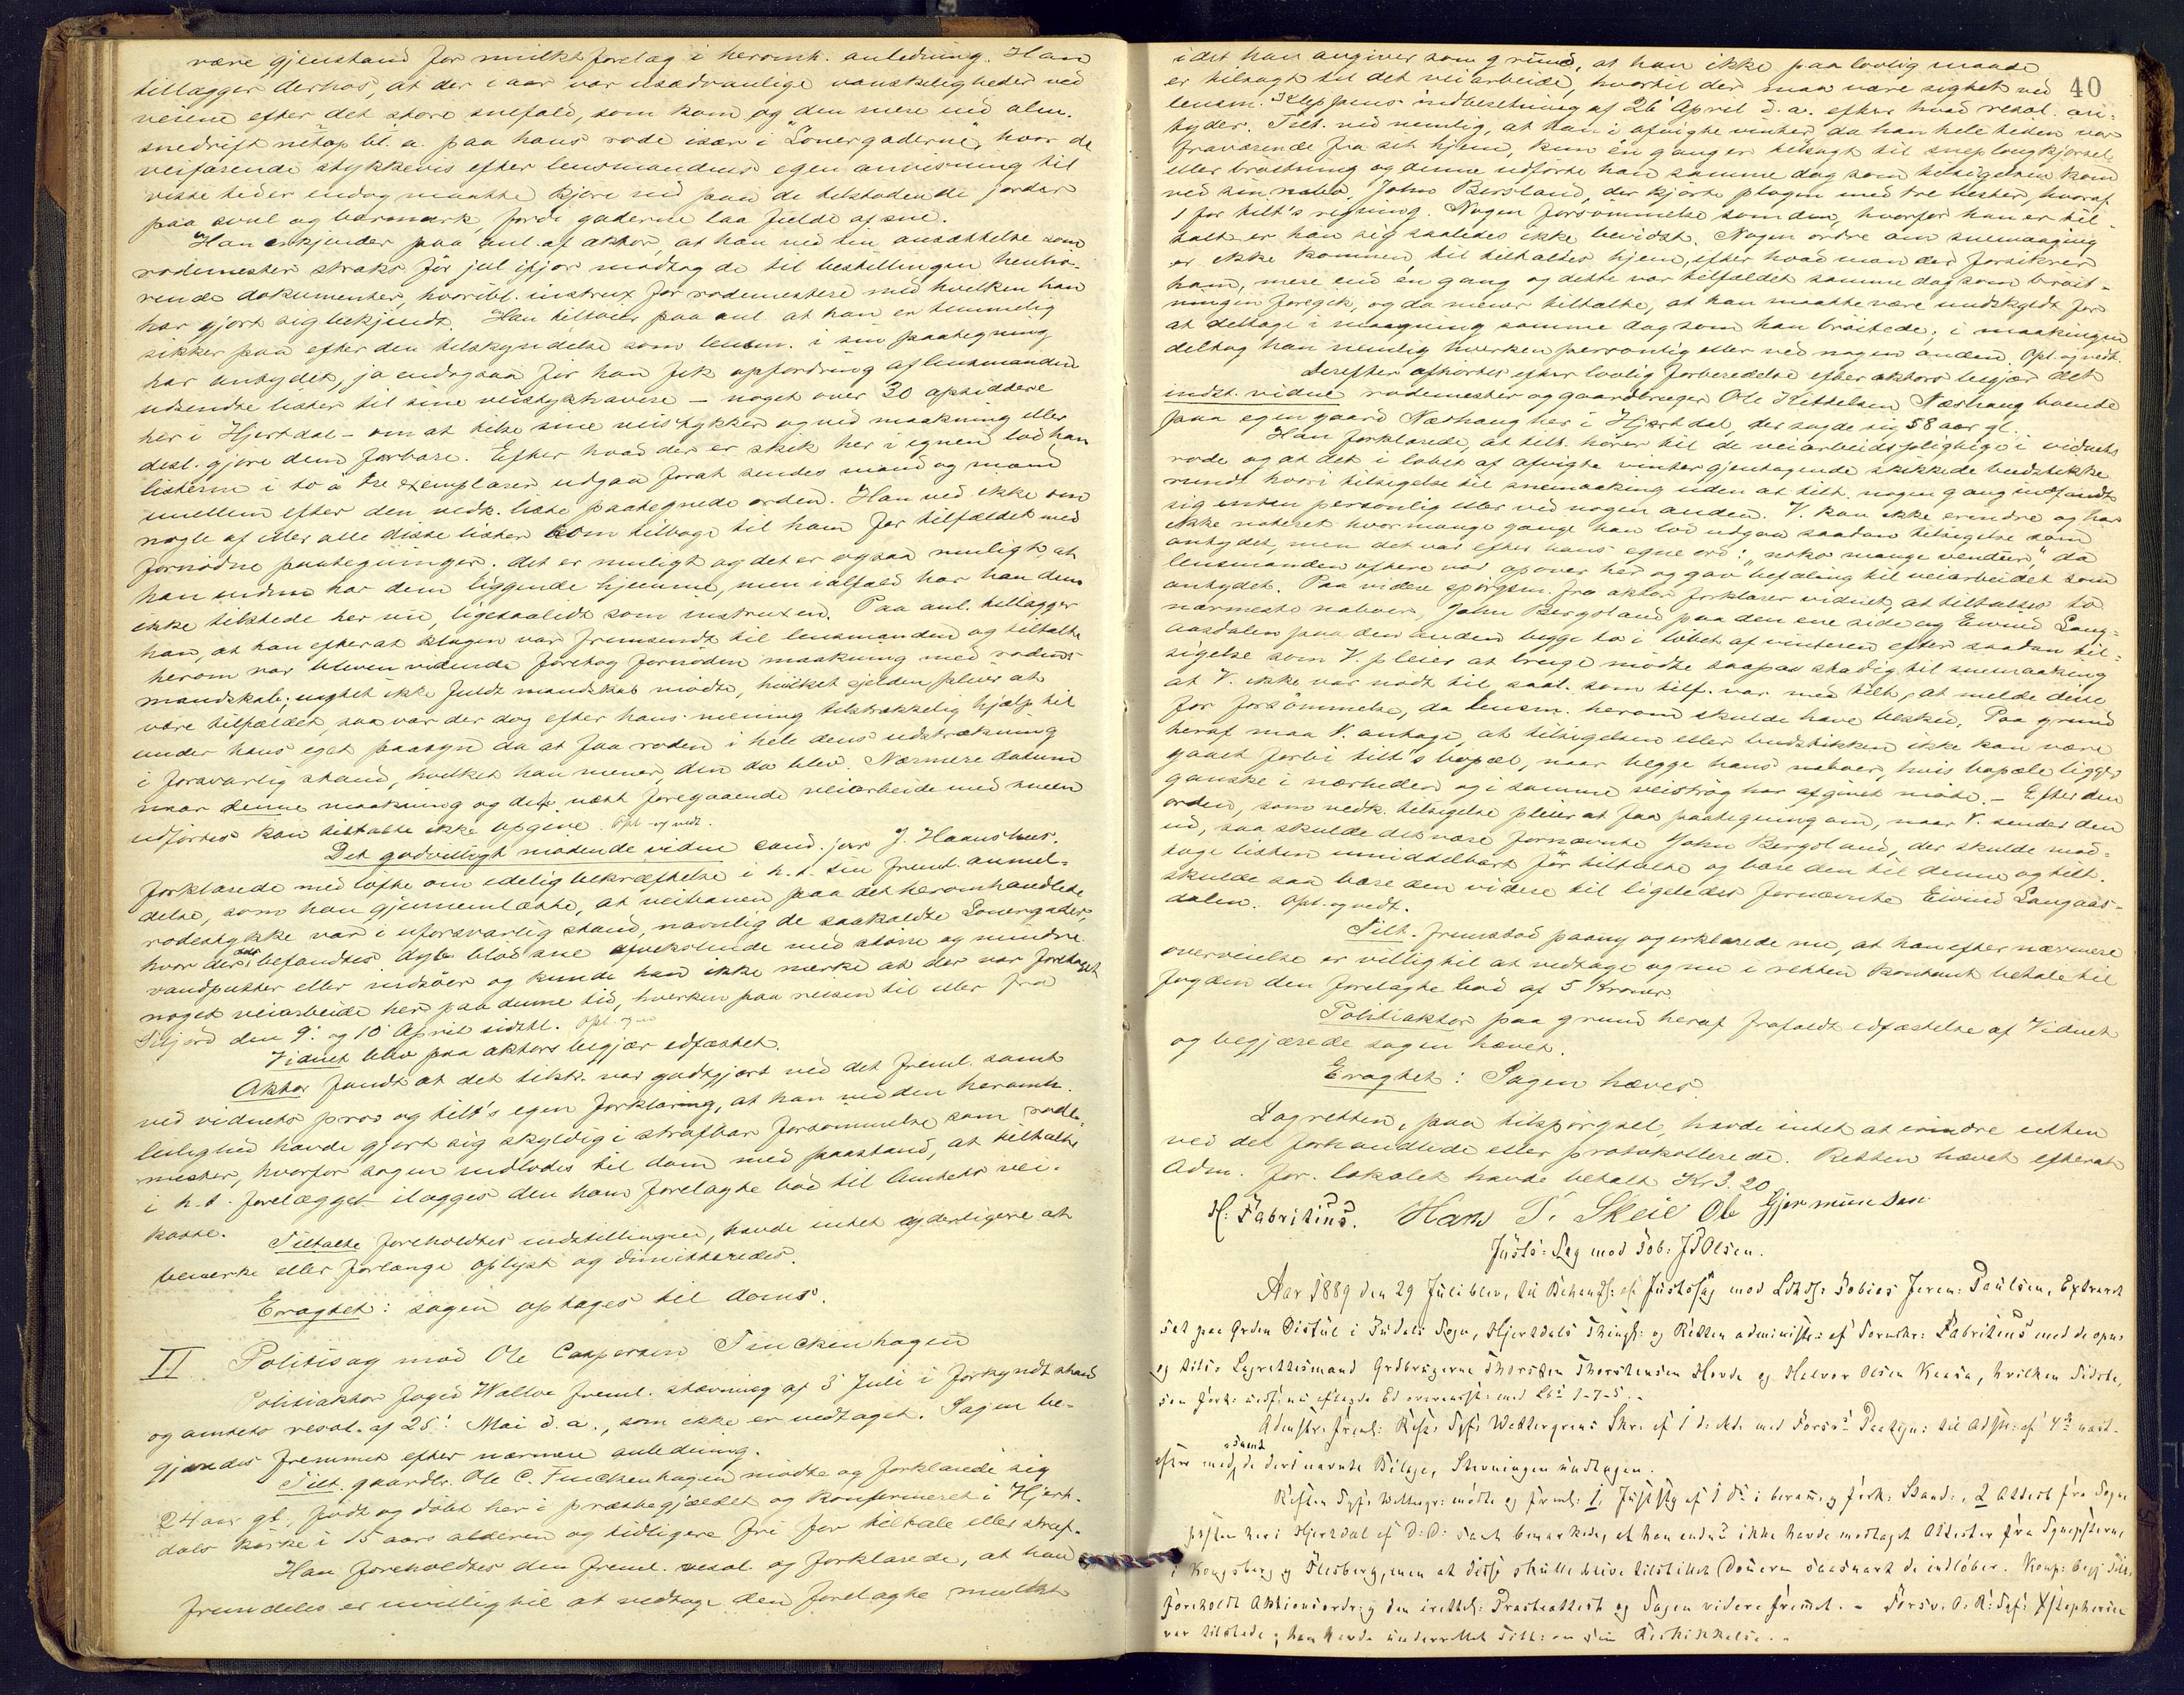 være gjenstand for mulktforelæg i heromh. anledning. Han
tillægger derhos, at der i aar var usædvanlige vanskeligheder ved
veiene efter det store snefald, som kom og den mere end alm.
snedrift netop bl. a. paa hans rode især i "Lonergaderne", hvor de
veifarende stykkevis efter lensmandens egen anvisning til
visse tider endog maatte kjøre ud paa de tilstødende jorder
paa svul og barmark, fordi gaderne laa fulde af sne.
Han erkjender paa anl. af aktor, at han ved sin ansættelse som
rodemester straks før jul ifjor modtog de til bestillingen henhø-
rende dokumenter, hvoribl. instrux for rodemestere med hvilken han
har gjort sig bekjendt. Han tilføier paa anl. at han er temmelig
sikker paa efter den tilskyndelse som lensm. i sin paategning
har antydet, ja endogsaa før han fik opfordring af lensmanden
udsendte lister til sine veistyk havere – noget over 30 opsiddere
her i Hjertdal – om at tilse sine veistykker og ved maakning eller
desl. gjøre dem farbare. Efter hvad der er skik her i egnen lod han
listerne i to a tre exemplarer udgaa forat sendes mand og mand
imellem efter den vedk. liste paategnede orden. Han ved ikke om
nogle af eller alle disse lister kom tilbage til ham før tilfældet med
fornødne paategninger. Det er muligt og det er ogsaa muligt at
han endnu har dem liggende hjemme, men ialfald har han dem
ikke tilstede her nu, ligesaalidt som instruxen. Paa anl. tillægger
han, at han efterat klagen var fremsendt til lensmanden og tiltalte
herom var bleven vidende foretog fornøden maakning med rodens
mandskab; uagtet ikke fuldt mandskab mødte, hvilket sjelden pleier at
være tilfældet, saa var der dog efter hans mening tilstrækkelig hjælp til
under hans eget paasyn da at faa roden i hele dens udstrækning
i forsvarlig stand, hvilket han mener, den da blev. Nærmere datum
naar denne maakning og det næst foregaaende veiarbeide med sneen
udførtes kan tiltalte ikke opgive. Opl. og vedt.
Det godvilligt mødende vidne cand. jur J. Haanshus.
forklarede med løfte om edelig bekræftelse i h. t. sin freml. anmel-
delse, som han gjennemlæste, at veibanen paa det heromhandlede
rodestykke var i uforsvarlig stand, navnlig de saakaldte Lonergader,
hvor der befandtes dyb blød sne afvekslende med større og mindre
vandpytter eller indsøer og kunde han ikke mærke at der var foretaget
noget veiarbeide her paa denne tid, hverken paa reisen til eller fra
Siljord den 9. og 10 April sidstl. Opl. og v.
Vidnet blev paa aktors begjær edfæstet.
Aktor fandt at det tilstr. var godtgjort ved det freml. samt
ved vidnets prov og tilt's egen forklaring, at han ved den heromh.
leilighed havde gjort sig skyldig i strafbar forsømmelse som rode-
mester, hvorfor sagen indlodes til dom med paastand, at tiltalte
i h. t. forelægget ilægges den ham forelagte bod til Amtets vei-
kasse.
Tiltalte foreholdtes indstillingen, havde intet yderligere at
bemærke eller forlange oplyst og dimitteredes.
Eragtet: sagen optages til doms.
II Politisag mod Ole Caspersen Finckenhagen
Politiaktor foged Walløe freml. stævning af 3 Juli i forkyndt stand
og amtets resol. af 25. Mai d. a., som ikke er vedtaget. Sagen be-
gjæredes fremmet efter nærmere anledning.
Tilt. gaardbr. Ole C. Finckenhagen mødte og forklarede sig
24 aar gl., født og døbt her i præstegjældet og konfirmeret i Hjert-
dals kirke i 15 aars alderen og tidligere fri for tiltale eller straf.
Han foreholdtes den freml. resol. og forklarede, at han
fremdeles er uvillig til at vedtage den forelagte mulkt
40
idet han angiver som grund, at han ikke paa lovlig maade
er tilsagt til det veiarbeide, hvortil der maa være sigtet ved
lensm. Kleppens indberetning af 26' April d. a. efter hvad resol. an-
tyder. Tilt. ved nemlig, at han i afvigte vinter, da han hele tiden var
fraværende fra sit hjem, kun én gang er tilsagt til sneplougkjørsel
eller brøitning og denne udførte han samme dag som tilsigelsen kom
ved sin nabo, John Bersland, der kjørte plogen med tre hester, hvoraf
1 for tilt's regning. Nogen forsømmelse som den, hvorfor han er til-
talt er han sig saaledes ikke bevidst. Nogen ordre om snemaaging
er ikke kommen til tiltaltes hjem, efter hvad man der forsikrer
ham, mere end én gang og dette var tilfældet samme dag som brøit-
ningen foregik, og da mener tiltalte, at han maatte være undskyldt for
at deltage i maagning samme dag som han brøitede; i maakingen
deltog han nemlig hverken personlig eller ved nogen anden. Opl. og vedt.
Derefter afhørtes efter lovlig forberedelse efter aktors begjær det
indst. vidne rodemester og gaardbruger Ole Kittelsen Næshaug boende
paa egen gaard Næshaug her i Hjertdal, der sagde sig 58 aar gl.
Han forklarede, at tilt. hører til de veiarbeidspligtige i vidnets
rode og at det i løbet af afvigte vinter gjentagende skikkede budstikke
rundt hvori tilsigelse til snemaaking uden at tilt. nogen gang indfandt
sig enten personlig eller ved nogen anden. V. kan ikke erindre og har
ikke noteret hvormange gange han lod udgaa saadan tilsigelse som
antydet, men det var efter hans egne ord: "noko mange vendur", da
lensmanden oftere var opover her og gav befaling til veiarbeidet som
antydet. Paa videre spørgsm. fra aktor forklarer vidnet, at tiltaltes to
nærmeste naboer, John Bergsland paa den ene side og Eivind Lang-
aasdalen paa den anden begge to i løbet af vinteren efter saadan til-
sigelse som V. pleier at bruge mødte saapas stadig til snemaaking
at V. ikke var nødt til saal. som tilf. var med tilt., at melde dem
for forsømmelse, da lensm. herom skulde have besked. Paa grund
heraf maa V. antage, at tilsigelsen eller budstikken ikke kan være
gaaet forbi tilt's bopæl, naar begge hans naboer, hvis bopæle ligger
ganske i nærheden og i samme veistrøg har afgivet møde. – Efter den
orden, som vedk. tilsigelse pleier at faa paategning om, naar V. sender den
ud, saa skulde det være fornævnte John Bergsland, der skulde mod-
tage listen umiddelbart før tiltalte og bære den til denne og tilt.
skulde saa bære den videre til ligeledes fornævnte Eivind Langaas-
dalen. Opl. og vedt.
Tilt. fremstod paany og erklærede nu, at han efter nærmere
overveielse er villig til at vedtage og nu i retten kontant betale til
fogden den forelagte bod af 5 Kroner.
Politiaktor paa grund heraf frafaldt edfæstelse af Vidnet
og begjærede sagen hævet.
Eragtet: Sagen hæves.
Lagretten, paa tilspørgsel, havde intet at erindre uden
ved det forhandlede eller protokollerede. Retten hævet efterat
Adm. for lokalet havde betalt Kr 3.20
H. Fabritius. Hans T. Skeie Ole Gjermundsen
Justs: Sag mod Tob: J Olsen.
Aar 1889 den 29 Juli blev, til Behandl: af Justssag mod Tobias Jerem: Paulsen, Extraret
sat paa Grden Distul i Tudals Sogn, Hjertdals Thingl: og Retten administr: af Sorenskr: Fabritius med de opn:
og tilts Lagrettesmænd Grdbrugerne Thorsten Thorstensen Hovde og Halvor Olsen Kaasa, hvilken Sidste,
som Forh: aflagde Ed overensst: med L 1-7-5.
Adminstr: freml: Wettergrens Skr. af 1 d: Md. med
efter med, samt de deri nævnte Bilage, Stevningen undtagen.
Wettergr: mødte og freml: 1, af 1 ds i beram: og fork: Stand:, 2 Attest fra Sogne
presten her i Hjertdal af D: D: samt bemærkede, at han endnu ikke havde modtaget Attester fra Sgnepresterne
i Kongsberg og Flesberg, men at disse skulle blive tilstillet Domeren saasnart de indløber.
foreholdt Aktionsordr: og den irettel: Præsteattest og Sagen videre fremet. – Forsv. O. R: Sagf:
var tilstede; han havde underrettet Tilt: om sin Beskikkelse.